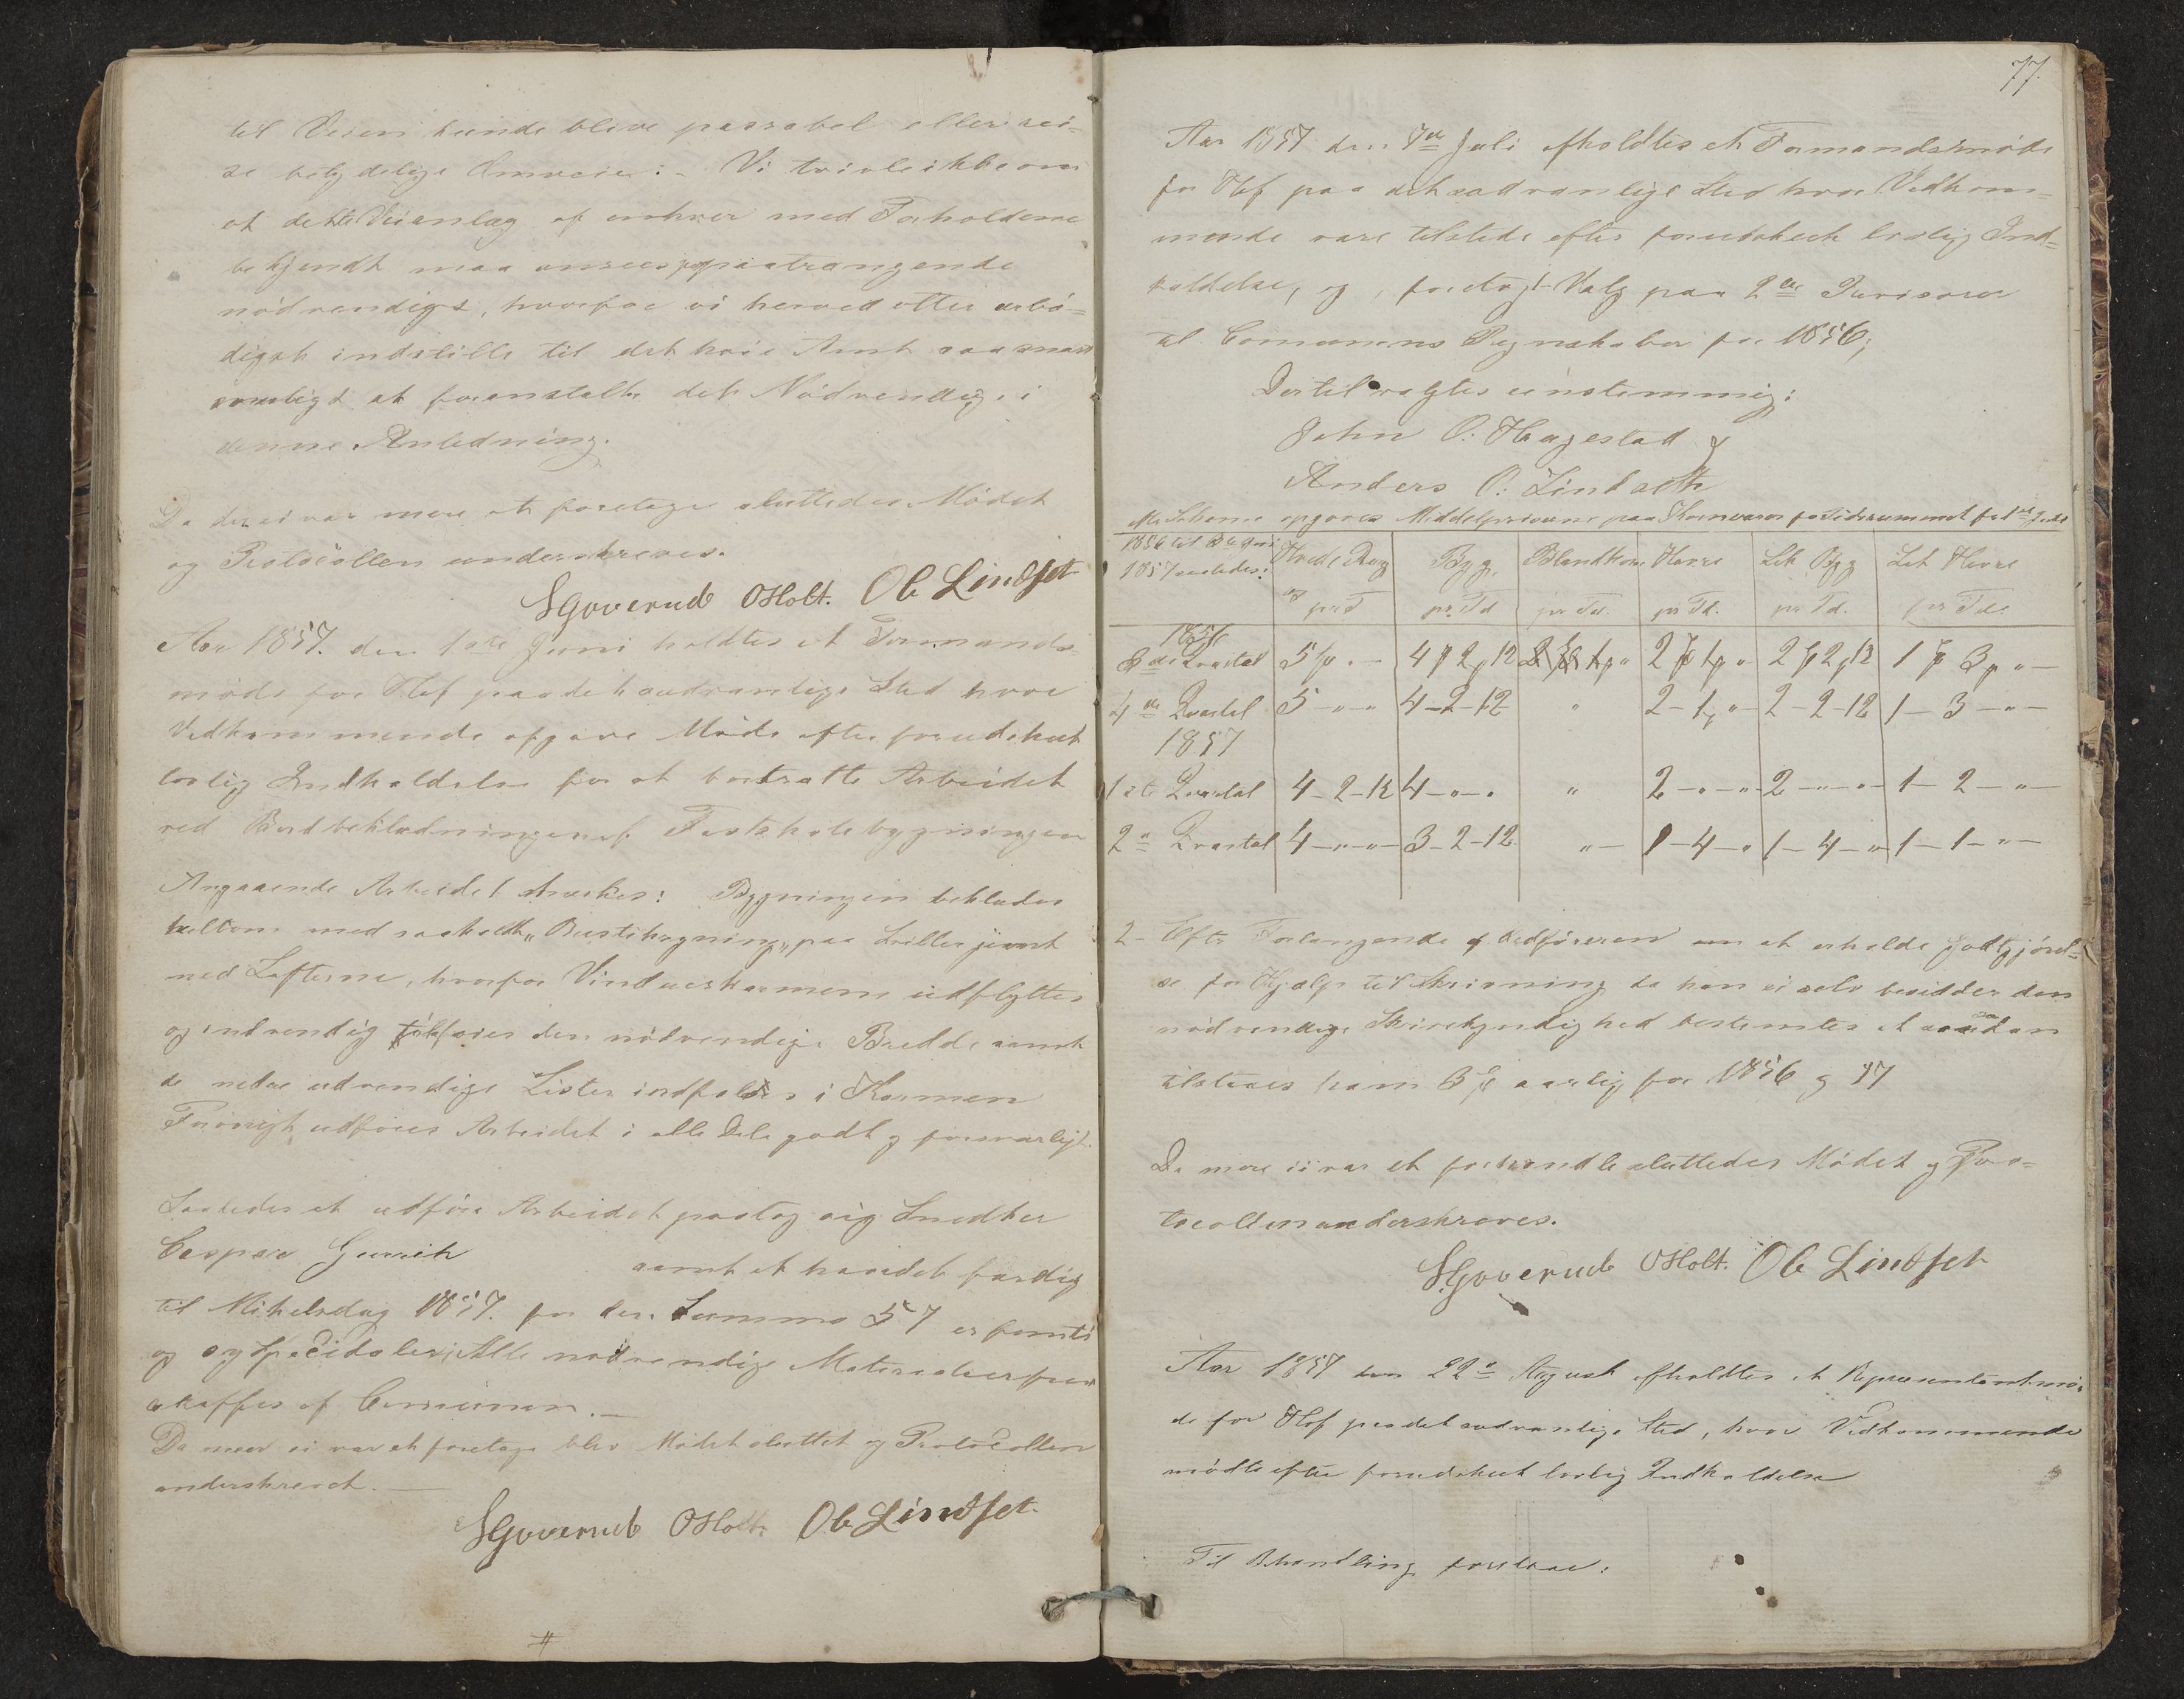 til Veien kunde blive passabel eller rei-
se betydelige Omveie :- Vi tvivle ikke om
at dette Veianlæg af enhver med Forholdene
bekjendt maa ansees paatrængende
nødvendigt, hvorfor vi herved etter ærbø-
digst indstille til det høie Amt saasnart
muligt at foranstalte det Nødvendige i
denne Anledning.
Da der ei var mere at foretage sluttedes Mødet
og Protocollen underskreves.
SGoverud OHolt. Ole Lindset
Aar 1857. den 1ste Juni holdtes et Formands-
møde for Hof paa det sædvanlige Sted hvor
Vedkommende afgave Møde efter forudskeet
lovlig Indkaldelse for at bortsætte Arbeidet
ved Bordbeklædningen af Fastskolebygningen
Angaaende Arbeidet Bygningen beklædes
heltom med saakaldt paa jevnt
med Lafterne, hvorfor Vindueskarmene udflyttes
og indvendig tilføies den nødvendige Bredde samt
de nedre udvendige Lister indfældes i Karmen
Forøvrigt udføres Arbeidet i alle Dele godt og forsvarligt.
Saaledes at udføre Arbeidet paatog sig Snedker
Casper samt at have det færdig
til Mikelsdag 1857. for den Summa 57 er femti
og syv Specidaler; Alle nødvendige Materialier
skaffes af Communen.—
Da mere ei var at foretage blev Mødet sluttet og Protocollen
underskrevet.—
SGoverud OHolt Ole Lindset
#
77.
Aar 1857 den 7de Juli afholdtes et Formandsmøde
for Hof paa det sædvanlige Sted hvor Vedkom-
mende vare tilstede efter forudskeet lovlig Ind-
kaldelse, og foretoges Valg paa 2de Revisorer
til Comunens Regnskaber for 1856;
Dertil valgtes eenstemmig:
John O: Hagestad &
Anders O: Lindseth
opgaves Middelpriserne paa Kornvarer for Tidsrummet fra 1ste Juli
1856 til Juni 1857 saaledes: | Hvede og Rug pr T | Byg pr Td | Blandkorn pr Td. | Havre pr Td. | Let Byg pr Td. | Let Havre pr Tde
1856
3de Qvartal | 5 " - | 4 2 12 | | 2 1 " | 2 2 12 | 1 3 " -
4de Qvartal | 5 - " - " | 4 - 2 - 12 | " | 2 - 1 - " | 2 - 2 - 12 | 1 - 3 - " -
1857
1ste Qvartal | 4 - 2 - 12 | 4 - " - " | " | 2 - " - " | 2 - " - " | 1 - 2 - " -
2de Qvartal | 4 - " - " | 3 - 2 - 12 | " | 1 - 4 - " | 1 - 4 - " | 1 - 1 - " -
2- Efter Forlangende af om at erholde Godtgjørel-
se for Hjælp til Skrivning da han ei selv besidder den
nødvendige Skrivekyndighed bestemtes at saadan
tilstaaes ham 3 aarlig for 1856 og 57
Da mere ei var at forhandle sluttedes Mødet og Pro-
tocollen underskreves.
SGoverud OHolt. Ole Lindset
Aar 1857 den 22de August afholdtes et Repræsentantmø-
de for Hof paa det sædvanlige Sted, hvor Vedkommende
mødte efter forudskeet lovlig Indkaldelse
Til Behandling forelaae: